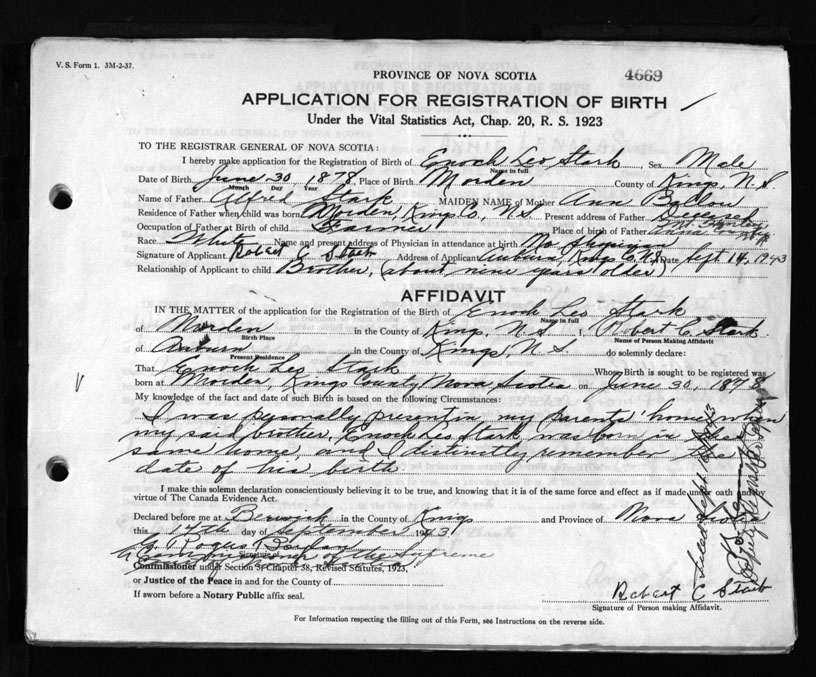 V. S. Form 1. 3M-2-37.
PROVINCE OF NOVA SCOTIA 4669
APPLICATION FOR REGISTRATION OF BIRTH
Under the Vital Statistics Act, Chap. 20, R. S. 1923
TO THE REGISTRAR GENERAL OF NOVA SCOTIA:
I hereby make application for the Registration of Birth of Enoch Leo Stark, Sex Male
Name in full
Date of Birth June 30, 1878, Place of Birth Morden County of Kings, N. S.
Month Day Year
Name of Father Alfred Stark MAIDEN NAME of Mother Ann Ballou
Residence of Father when child was born Morden, Kings Co., N. S. Present address of Father Deceased
Occupation of Father at Birth of child Farmer Place of birth of Father
Race White Name and present address of Physician in attendance at birth No Physician
Signature of Applicant Robert C Stark Address of Applicant Auburn, Kings Co. N.S. Date Sept 14, 1943
Relationship of Applicant to child Brother, (about nine years older)
AFFIDAVIT
IN THE MATTER of the application for the Registration of the Birth of Enoch Leo Stark
Name in full
of Morden in the County of Kings, N. S. I, Robert C. Stark
Birth Place Name of Person Making Affidavit
of Auburn in the County of Kings, N. S. do solemnly declare:
Present Residence
That Enoch Leo Stark Whose Birth is sought to be registered was
born at Morden, Kings County, Nova Scotia on June 30, 1878
My knowledge of the fact and date of such Birth is based on the following Circumstances:
I was personally present in my parents' home when
my said brother, Enoch Leo Stark, was born in the
same home, and I distinctly remember the
date of his birth
I make this solemn declaration conscientiously believing it to be true, and knowing that it is of the same force and effect as if made under oath and by
virtue of The Canada Evidence Act.
Declared before me at Berwick in the County of Kings and Province of Nova Scotia
this 14th day of September 1943.
A Commissioner of the Supreme
Commissioner under Section 3, Chapter 38, Revised Statutes, 1923,
or Justice of the Peace in and for the County of
If sworn before a Notary Public affix seal.
Robert C Stark
Signature of Person making Affidavit.
For Information respecting the filling out of this Form, see Instructions on the reverse side.